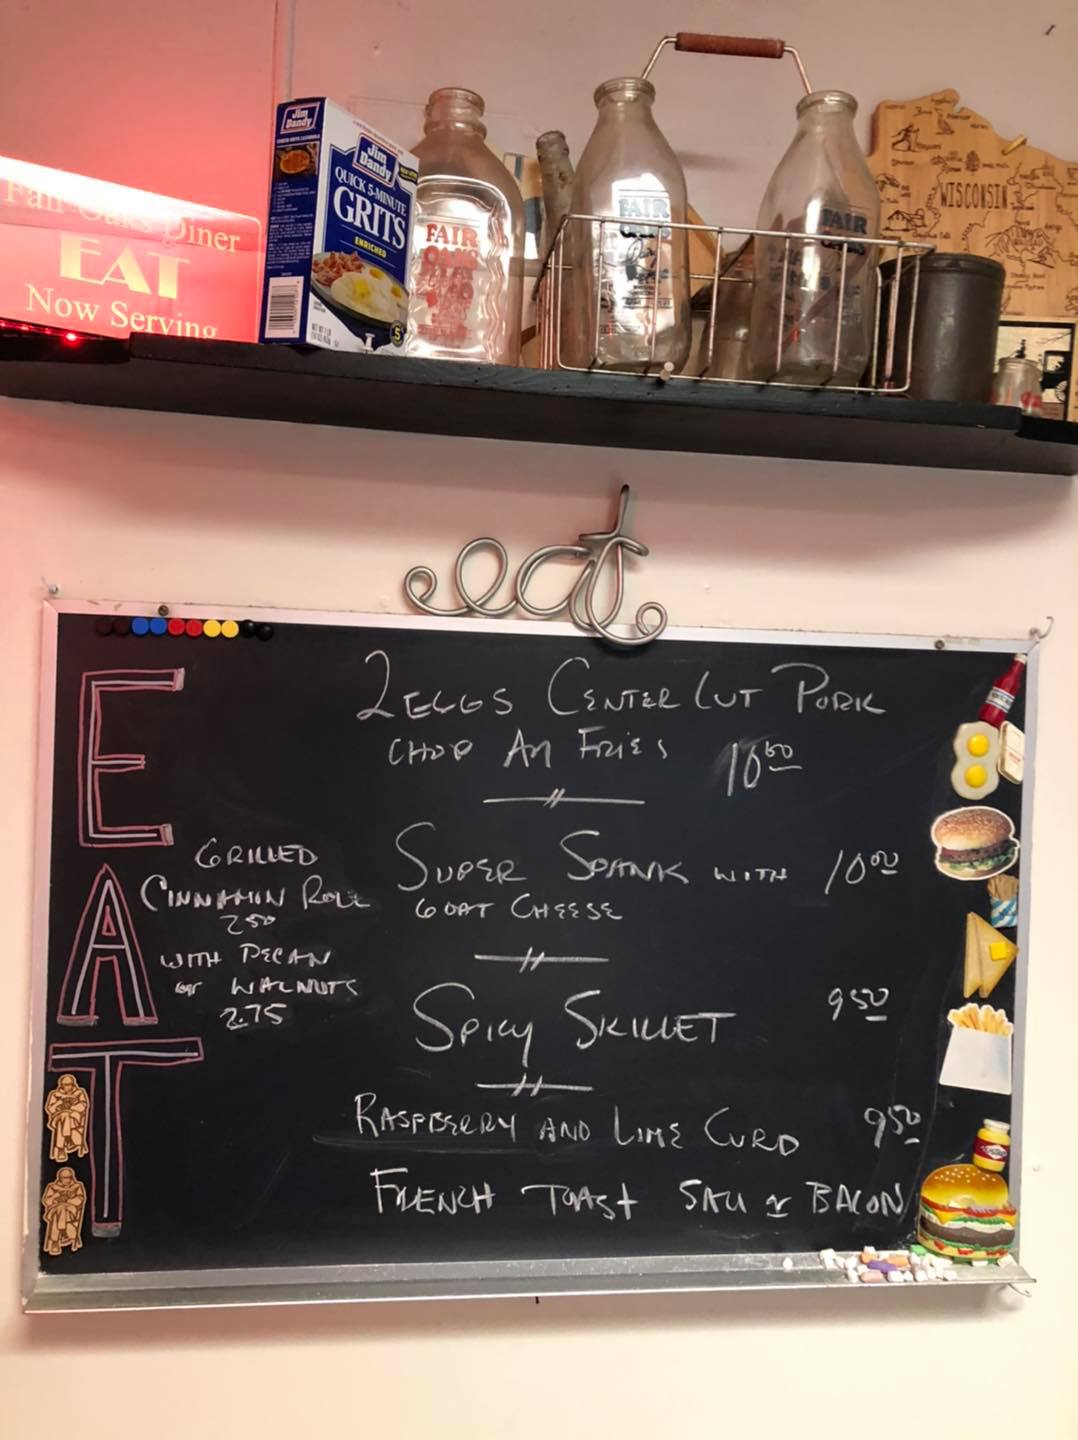 Fair Oaks Diner
EAT
Now Serving
Jim Dandy
Jim Dandy
QUICK 5-MINUTE
GRITS
ENRICHED
FAIR OAKS
FAIR OAKS
FAIR OAKS
WISCONSIN
eat
EAT
2 EGGS CENTER CUT PORK
CHOP AN FRIES 10.50
SUPER SPANK WITH 10.00
GOAT CHEESE
SPICY SKILLET 9.50
RASPBERRY AND LIME CURD 9.50
FRENCH TOAST SAU or BACON
GRILLED
CINNAMON ROLL
2.50
WITH PECAN
or WALNUTS
2.75